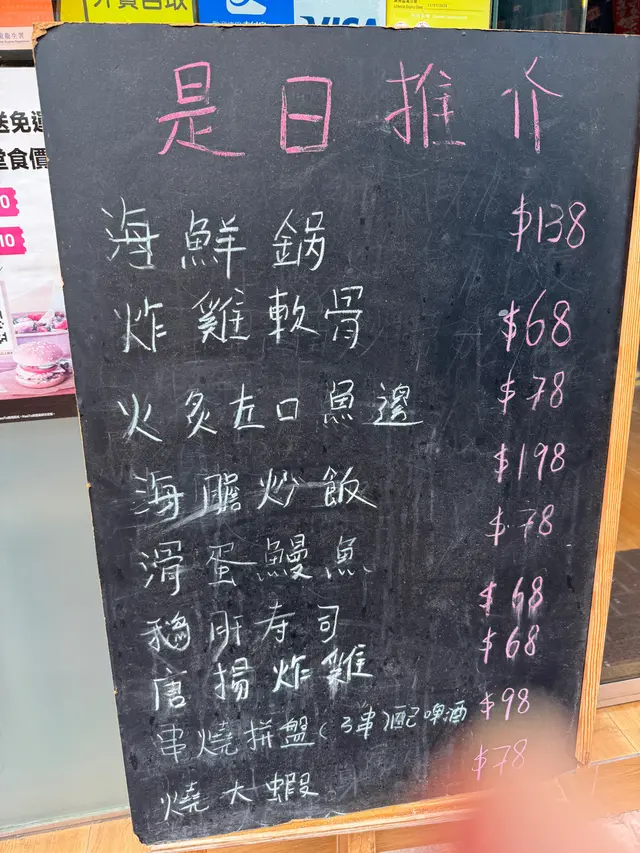 外賣自取
VISA
送免運
堂食價
是日推介
海鮮鍋 $138
炸雞軟骨 $68
火炙左口魚邊 $78
海膽炒飯 $198
滑蛋鰻魚 $78
鵝肝寿司 $68
唐揚炸雞 $68
串燒拼盤(3串)配啤酒 $98
燒大蝦 $78